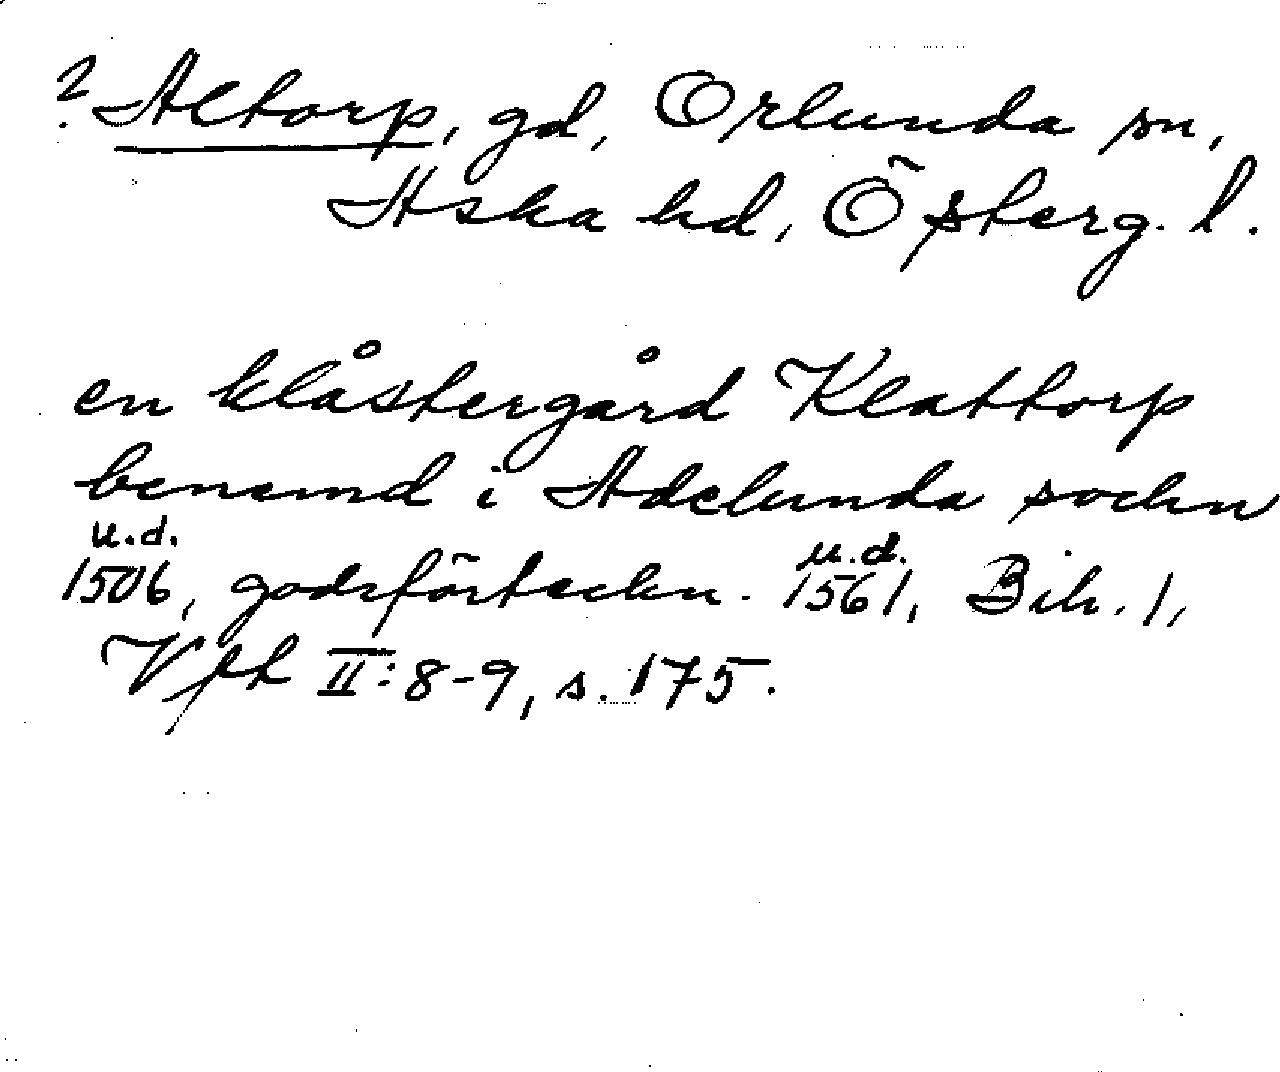 ? Altorp, gd, Orlunda sn,
Aska hd, Östergl.
en klåstergård Klattorp
benemd i Adelunda sochn
u.d. u.d.
1506, godsförteckn. 1561, Bih. 1,
Vfch II:8-9, s. 175.